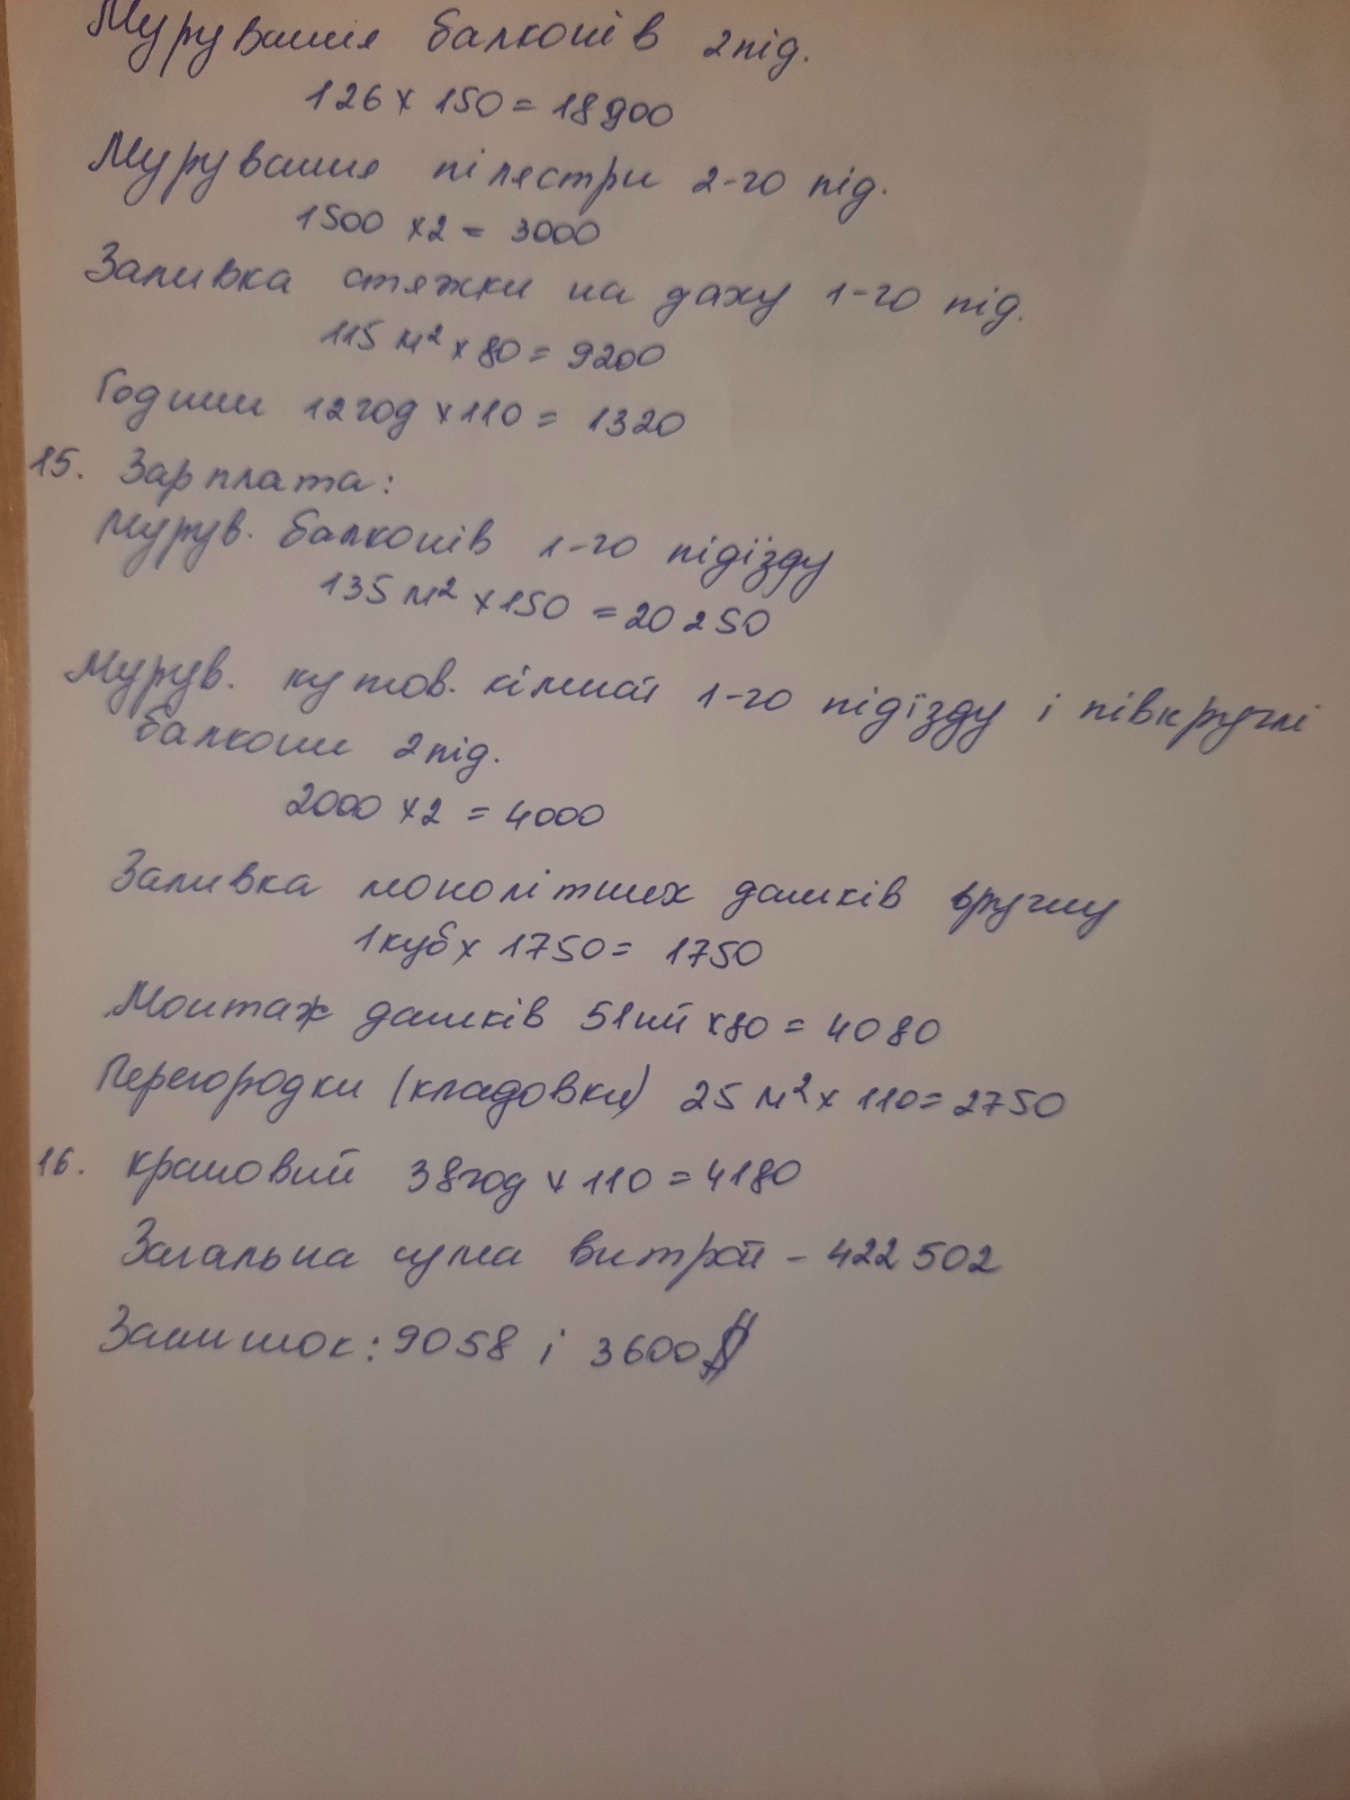 Мурування балконів 2 під.
126 х 150 = 18900
Мурування пілястри 2-го під.
1500 х 2 = 3000
Заливка стяжки на даху 1-го під.
115 м² х 80 = 9200
Години 12 год х 110 = 1320
15. Зарплата:
Мурув. балконів 1-го підїзду
135 м² х 150 = 20250
Мурув. кутов. кімнат 1-го підїзду і півкруглі
балкони 2 під.
2000 х 2 = 4000
Заливка монолітних дашків вручну
1 куб х 1750 = 1750
Монтаж дашків 51 х 80 = 4080
Перегородки (кладовки) 25 м² х 110 = 2750
16. Крановий 38 год х 110 = 4180
Загальна сума витрат - 422 502
Залишок: 9058 і 3600 $